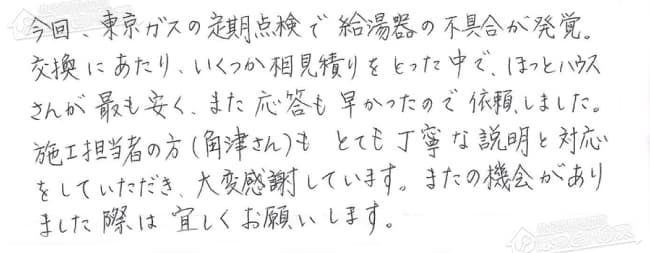 今回、東京ガスの定期点検で給湯器の不具合が発覚。
交換にあたり、いくつか相見積りをとった中で、ほっとハウス
さんが最も安く、また応答も早かったので依頼しました。
施工担当者の方(角津さん)も とても丁寧な説明と対応
をしていただき、大変感謝しています。またの機会があり
ました際は宜しくお願いします。